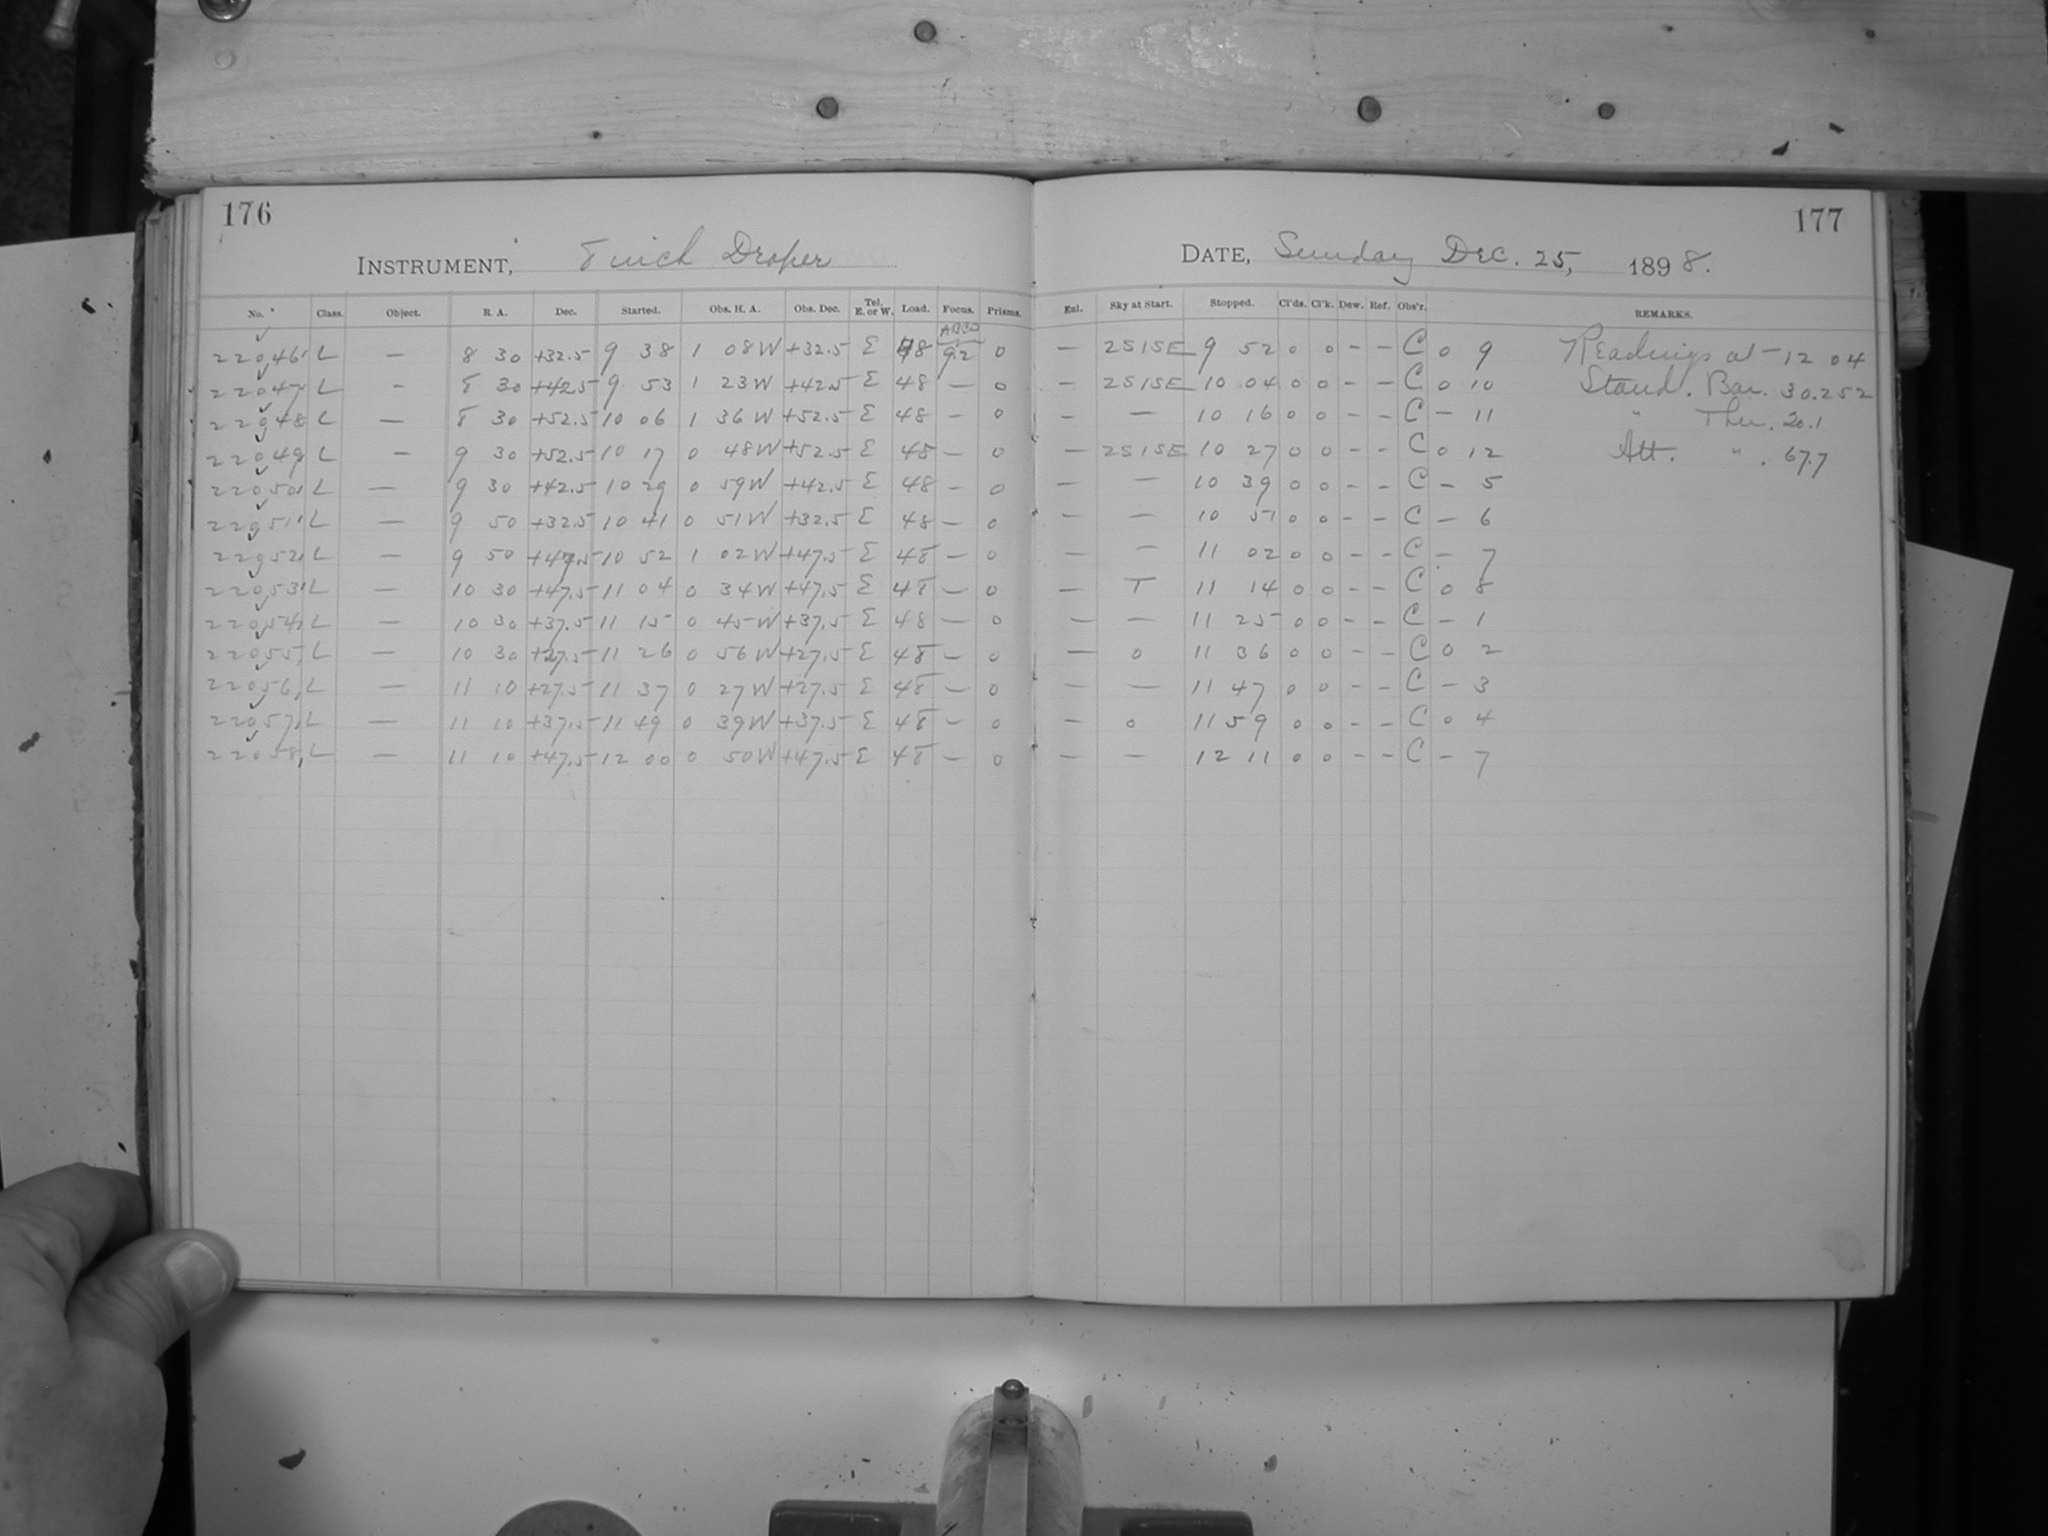 176
177
INSTRUMENT, 8 inch Draper
DATE, Sunday Dec. 25, 1898.
No. Class. Object. R. A. Dec. Started. Obs. H. A. Obs. Dec. Tel. E. or W. Load. Focus. Prisms. Enl. Sky at Start. Stopped. Cl'ds. Cl'k. Dew. Ref. Obs'r. REMARKS.
ABCD
22046 L — 8 30 +32.5 9 38 1 08W +32.5 E 48 92 0 — 2S1SE 9 52 0 0 - - C 0 9 Readings at 12 04
22047 L - 8 30 +42.5 9 53 1 23W +42.5 E 48 — 0 — 2S1SE 10 04 0 0 - - C 0 10 Stand. Bar. 30.252
22048 L — 8 30 +52.5 10 06 1 36W +52.5 E 48 — 0 — — 10 16 0 0 - - C — 11 " Ther. 20.1
22049 L — 9 30 +52.5 10 17 0 48W +52.5 E 48 — 0 — 2S1SE 10 27 0 0 - - C 0 12 Att. " . 67.7
22050 L — 9 30 +42.5 10 29 0 59W +42.5 E 48 — 0 — — 10 39 0 0 - - C — 5
22051 L — 9 50 +32.5 10 41 0 51W +32.5 E 48 — 0 — — 10 51 0 0 - - C — 6
22052 L — 9 50 +47.5 10 52 1 02W +47.5 E 48 — 0 — — 11 02 0 0 - - C — 7
22053 L — 10 30 +47.5 11 04 0 34W +47.5 E 48 — 0 — T 11 14 0 0 - - C 0 8
22054 L — 10 30 +37.5 11 15 0 45W +37.5 E 48 — 0 — — 11 25 0 0 - - C — 1
22055 L — 10 30 +27.5 11 26 0 56W +27.5 E 48 — 0 — 0 11 36 0 0 - - C 0 2
22056 L — 11 10 +27.5 11 37 0 27W +27.5 E 48 — 0 — — 11 47 0 0 - - C — 3
22057 L — 11 10 +37.5 11 49 0 39W +37.5 E 48 — 0 — 0 11 59 0 0 - - C 0 4
22058 L — 11 10 +47.5 12 00 0 50W +47.5 E 48 — 0 — — 12 11 0 0 - - C — 7